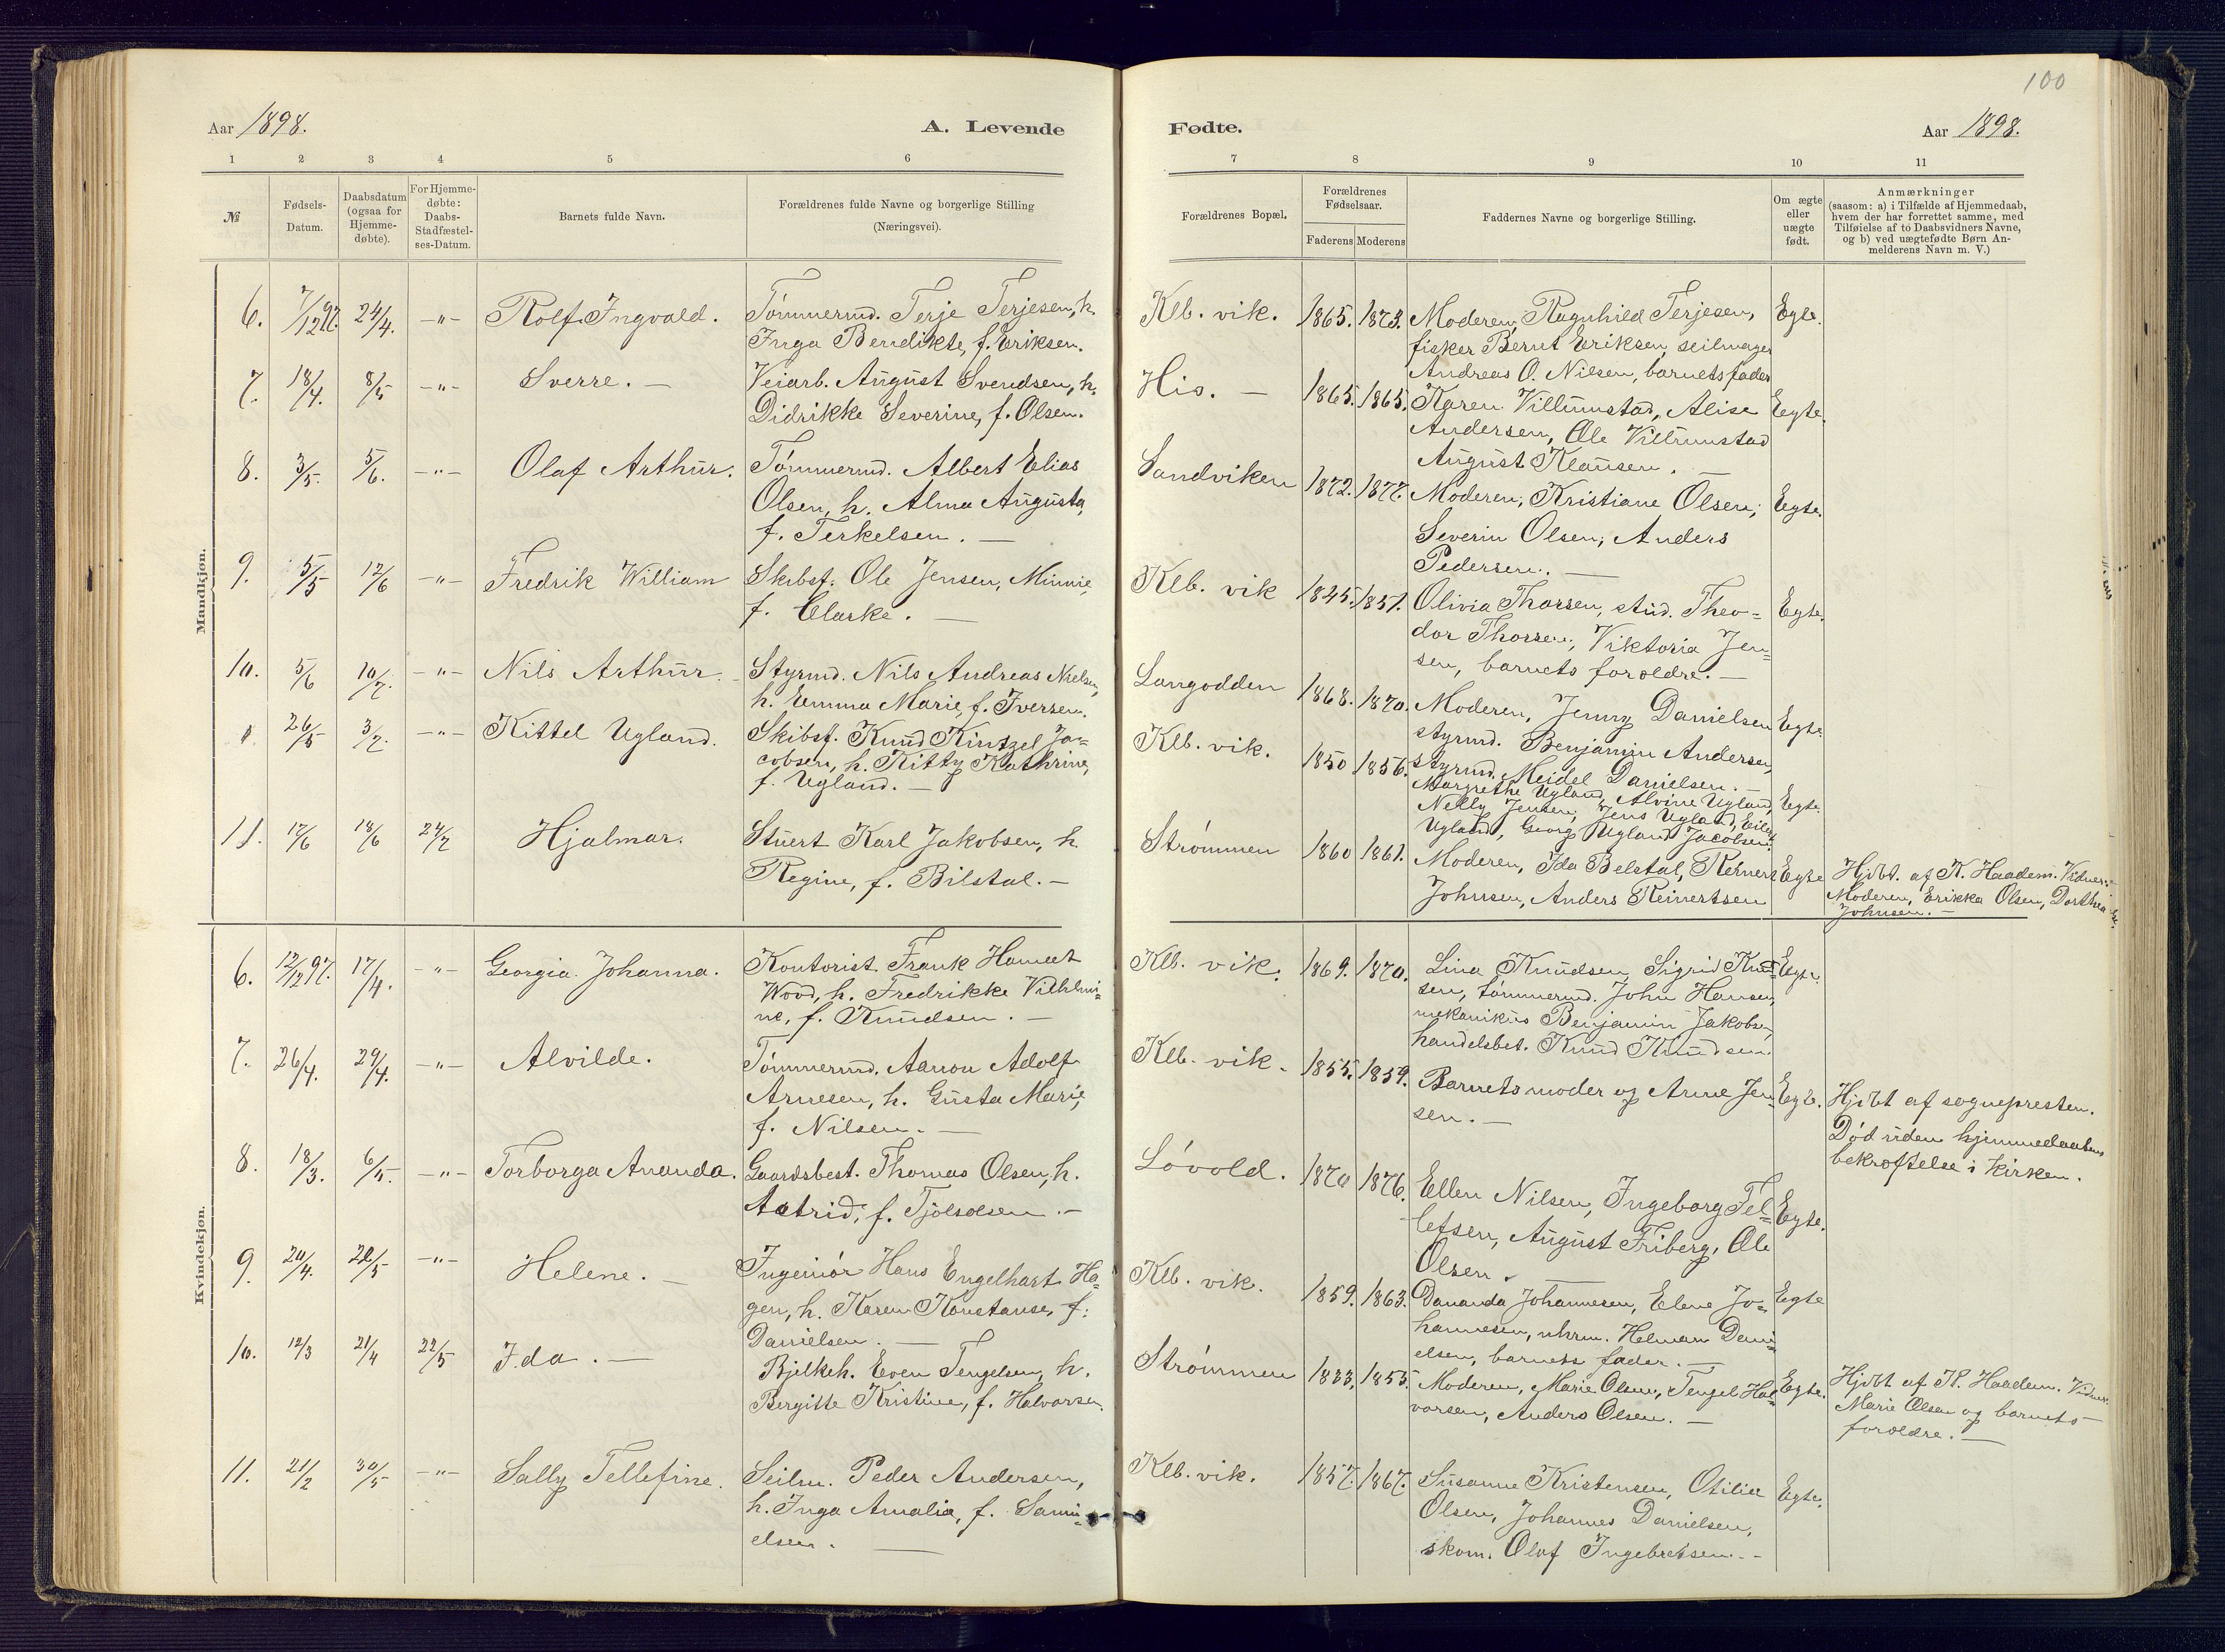 100
Aar 1898. A. Levende Fødte. Aar 1898.
1 2 3 4 5 6 7 8 9 10 11
№
Fødsels-
Datum.
Daabsdatum
(ogsaa for
Hjemme-
døbte).
For Hjemme-
døbte:
Daabs-
Stadfæstel-
ses-Datum.
Barnets fulde Navn.
Forældrenes fulde Navne og borgerlige Stilling
(Næringsvei).
Forældrenes Bopæl.
Forældrenes
Fødselsaar.
Faderens Moderens
Faddernes Navne og borgerlige Stilling.
Om ægte
eller
uægte
født.
Anmærkninger
(saasom: a) i Tilfælde af Hjemmedaab,
hvem der har forrettet samme, med
Tilføielse af to Daabsvidners Navne,
og b) ved uægtefødte Børn An-
melderens Navn m. V.)
Mandkjøn.
6. 7/12 97. 24/4. -"- Rolf Ingvald.
Tömmermd. Terje Terjesen, h.
Inga Bendikte, f. Eriksen.
Klb. vik. 1865. 1873.
Moderen, Ragnhild Terjesen,
fisker Bernt Eriksen, seilmager
Andreas O. Nilsen, barnets fader
Egte.
7. 18/4. 8/5 -"- Sverre. —
Veiarb. August Svendsen, h.
Didrikke Severine, f. Olsen.
His. — 1865. 1865.
Karen Villumstad, Alise
Andersen, Ole Villumstad
August Klausen. —
Egte.
8. 3/5. 5/6. -"- Olaf Arthur.
Tömmermd. Albert Elias
Olsen, h. Alma Augusta,
f. Terkelsen. —
Sandviken 1872. 1877.
Moderen, Kristiane Olsen,
Severin Olsen, Anders
Pedersen. —
Egte.
9. 5/5 12/6 -"- Fredrik William
Skibsf. Ole Jensen, Minnie,
f. Clarke. —
Klb. vik 1845. 1857.
Olivia Thorsen, stud. Theo=
dor Thorsen, Viktoria Jen=
sen, barnets foroldre. —
Egte.
10. 5/6 10/7. -"- Nils Arthur.
Styrmd. Nils Andreas Nielsen,
h. Emma Marie, f. Iversen.
Langodden 1868. 1870.
Moderen, Jenny Danielsen
styrmd. Benjamin Andersen,
styrmd. Meidel Danielsen. —
Egte.
26/5 3/7. -"- Kittel Ugland.
Skibsf. Knud Kintzel Ja=
cobsen, h. Kitty Kathrine,
f. Ugland. —
Klb. vik. 1850 1856.
Margrethe Ugland, Alvine Ugland,
Nelly Jensen, Jens Ugland, Eilert
Ugland, Georg Ugland Jacobsen.
Egte.
11. 17/6 18/6 24/7 Hjalmar.
Stuert Karl Jakobsen, h.
Regine, f. Bilstal. —
Strømmen 1860 1861.
Moderen, Ida Belstal,
Johnsen, Anders Reinertsen
Egte
Hjdbt. af K. Haadem. Vidner:
Moderen, Erikka Olsen, Dorthea
Johnsen. —
Kvindekjøn.
6. 12/12 97. 17/4. -"- Georgia Johanna.
Kontorist. Frank
Wood, h. Fredrikke Vilhlmi=
ne, f. Knudsen. —
Klb. vik. 1869. 1870.
Lina Knudsen, Sigrid Knud=
sen, tømmermd. John Hansen,
mekanikus Benjamin Jakobsen,
handelsbet. Knud Knudsen.
Egte.
7. 26/4. 29/4. -"- Alvilde.
Tömmermd. Aanon Adolf
Arnesen, h. Gusta Marie,
f. Nilsen. —
Klb. vik. 1855. 1859.
Barnets moder og Anne Jen=
sen. —
Egte.
Hjdbt af sognepresten.
Død uden hjemmedaabens
bekroftelse i kirken.
8. 18/3. 6/5. -"- Torborga Ananda.
Gaardsbest. Thomas Olsen, h.
Astrid, f. Tjölsolsen. —
Lövold. 1870 1876.
Ellen Nilsen, Ingeborg Tel=
lefsen, August Friberg, Ole
Olsen. —
Egte.
9. 20/4. 22/5 -"- Helene. —
Ingeniör Hans Engelhart Ha=
gen, h. Karen Konstanse, f.
Danielsen. —
Klb. vik. 1859. 1863.
Dananda Johannesen, Elene Jo=
hannesen, uhrm. Helmar Dani=
elsen, barnets fader. —
Egte
10. 12/3 21/4 22/5 Ida. —
Bjelkeh. Even Tengelsen, h.
Bergitte Kristine, f. Halvorsen.
Strömmen 1833. 1855.
Moderen, Marie Olsen, Tengel Hal=
vorsen, Anders Olsen. —
Egte.
Hjdbt af K. Haadem. Vidner:
Marie Olsen og barnets
foroldre. —
11. 21/2 30/5 -"- Sally Tellefine.
Seilm. Peder Andersen,
h. Inga Amalia, f. Samu=
elsen. —
Klb. vik. 1857. 1867.
Susanne Kristensen, Otilia
Olsen, Johannes Danielsen,
skom. Olaf Ingebretsen. -
Egte.